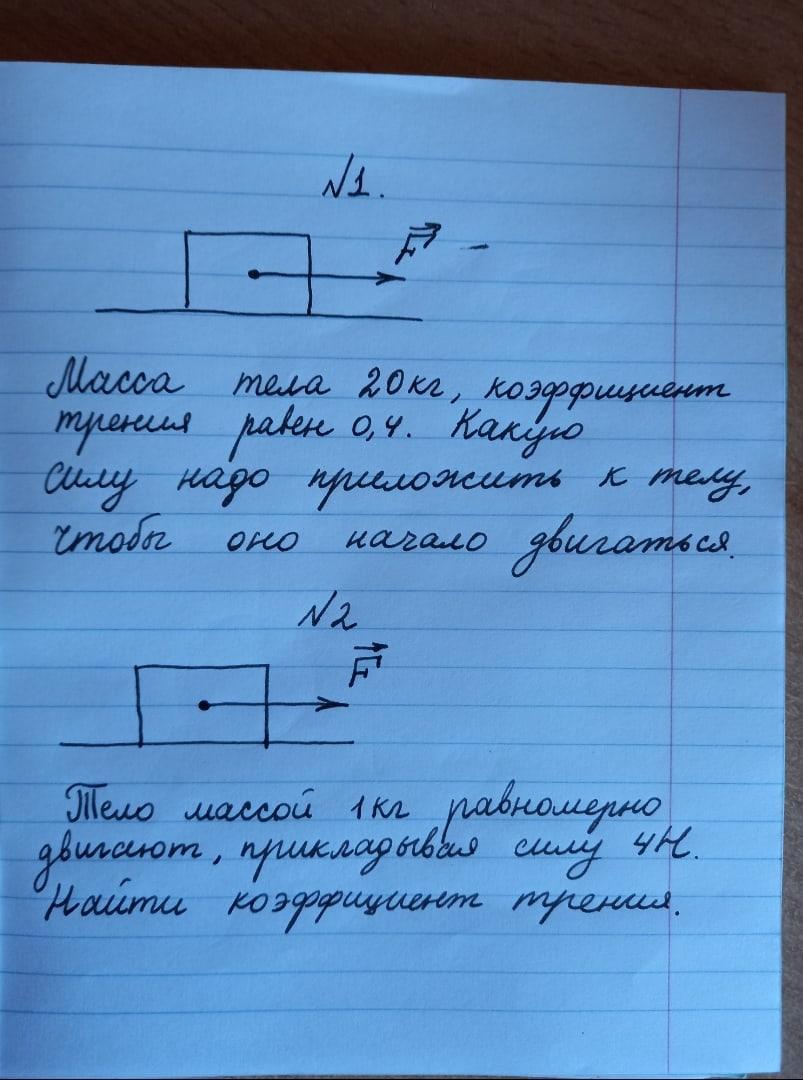 №1.
F
Масса тела 20кг, коэффициент
трения равен 0,4. Какую
силу надо приложить к телу,
чтобы оно начало двигаться.
№2
F
Тело массой 1кг равномерно
двигают, прикладывая силу 4Н.
Найти коэффициент трения.